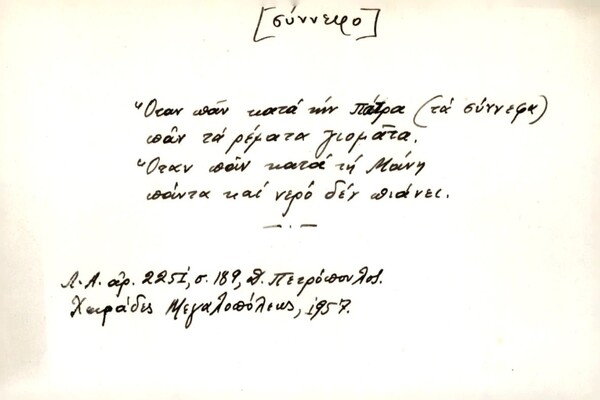 [σύννεφο]
Ὅταν πᾶν κατά τήν Πάτρα (τά σύννεφα)
πᾶν τά ρέματα γιομᾶτα.
Ὅταν πᾶν κατά τή Μάνη
πάντα καί νερό δέν πιάνει.
Λ.Α. ἀρ. 2251, σ. 189, Δ. Πετρόπουλος.
Χειράδες Μεγαλοπόλεως, 1957.